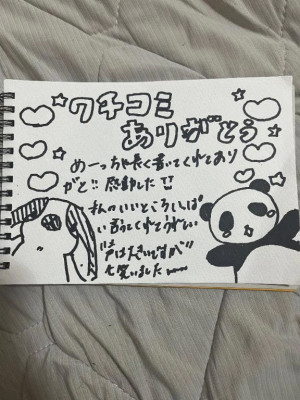 クチコミ
ありがとう
めーっちゃ長く書いてくれてあり
がと!! 感動した!!
私のいいところいっぱ
い言ってくれてうれしい
"声は大きいですが"
も笑いましたwww